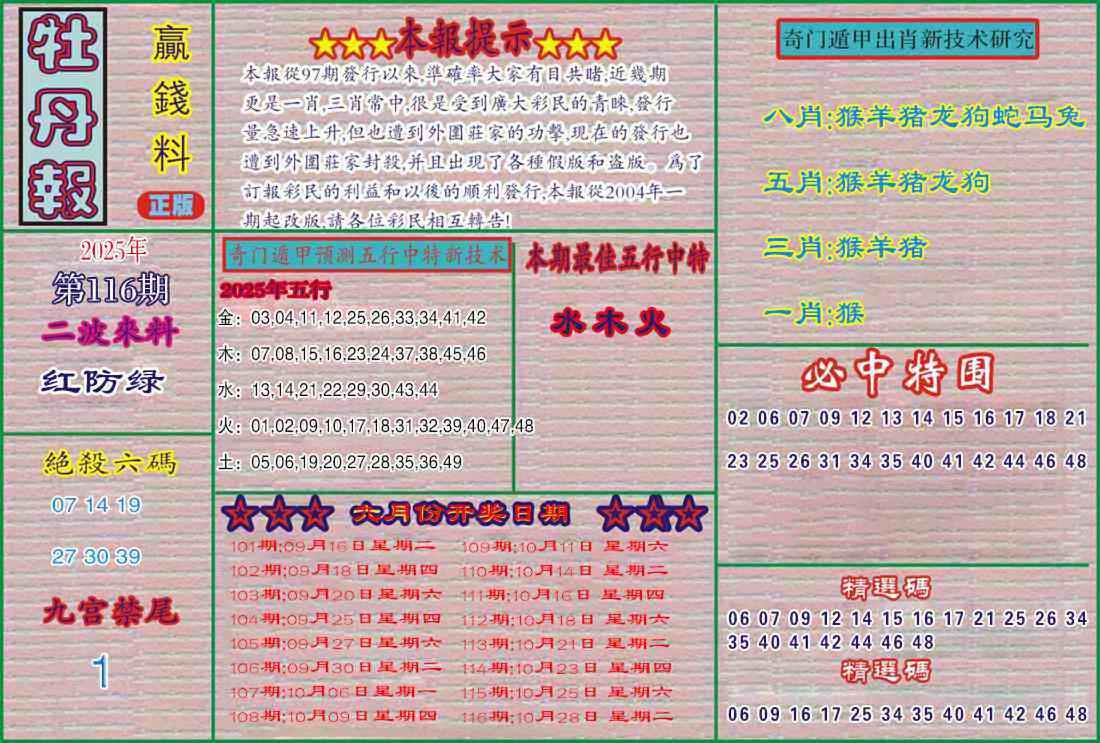 牡丹報
贏錢料
正版
★★★本報提示★★★
本報從97期發行以來,準確率大家有目共睹,近幾期
更是一肖,三肖常中,很是受到廣大彩民的青睞,發行
量急速上升,但也遭到外圍莊家的功擊,現在的發行也
遭到外圍莊家封殺,并且出現了各種假版和盗版。爲了
訂報彩民的利益和以後的順利發行,本報從2004年一
期起改版,請各位彩民相互轉告!
奇门遁甲出肖新技术研究
八肖:猴羊猪龙狗蛇马兔
五肖:猴羊猪龙狗
三肖:猴羊猪
一肖:猴
2025年
第116期
二波來料
红防绿
奇门遁甲预测五行中特新技术
2025年五行
金：03,04,11,12,25,26,33,34,41,42
木：07,08,15,16,23,24,37,38,45,46
水：13,14,21,22,29,30,43,44
火：01,02,09,10,17,18,31,32,39,40,47,48
土：05,06,19,20,27,28,35,36,49
本期最佳五行中特
水木火
必中特围
02 06 07 09 12 13 14 15 16 17 18 21
23 25 26 31 34 35 40 41 42 44 46 48
絕殺六碼
07 14 19
27 30 39
九宫禁尾
1
★★★ 六月份开奖日期 ★★★
101期;09月16日星期二 109期;10月11日 星期六
102期;09月18日星期四 110期;10月14日 星期二
103期;09月20日星期六 111期;10月16日 星期四
104期;09月25日星期四 112期;10月18日 星期六
105期;09月27日星期六 113期;10月21日 星期二
106期;09月30日星期二 114期;10月23日 星期四
107期;10月06日星期一 115期;10月25日 星期六
108期;10月09日星期四 116期;10月28日 星期二
精選碼
06 07 09 12 14 15 16 17 21 25 26 34
35 40 41 42 44 46 48
精選碼
06 09 16 17 25 34 35 40 41 42 46 48